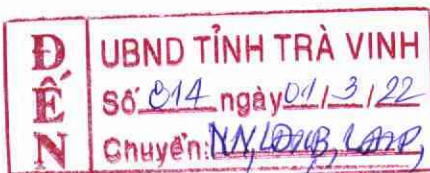 ĐẾN
UBND TỈNH TRÀ VINH
Số 014 ngày 01/3/22
Chuyển: NN,